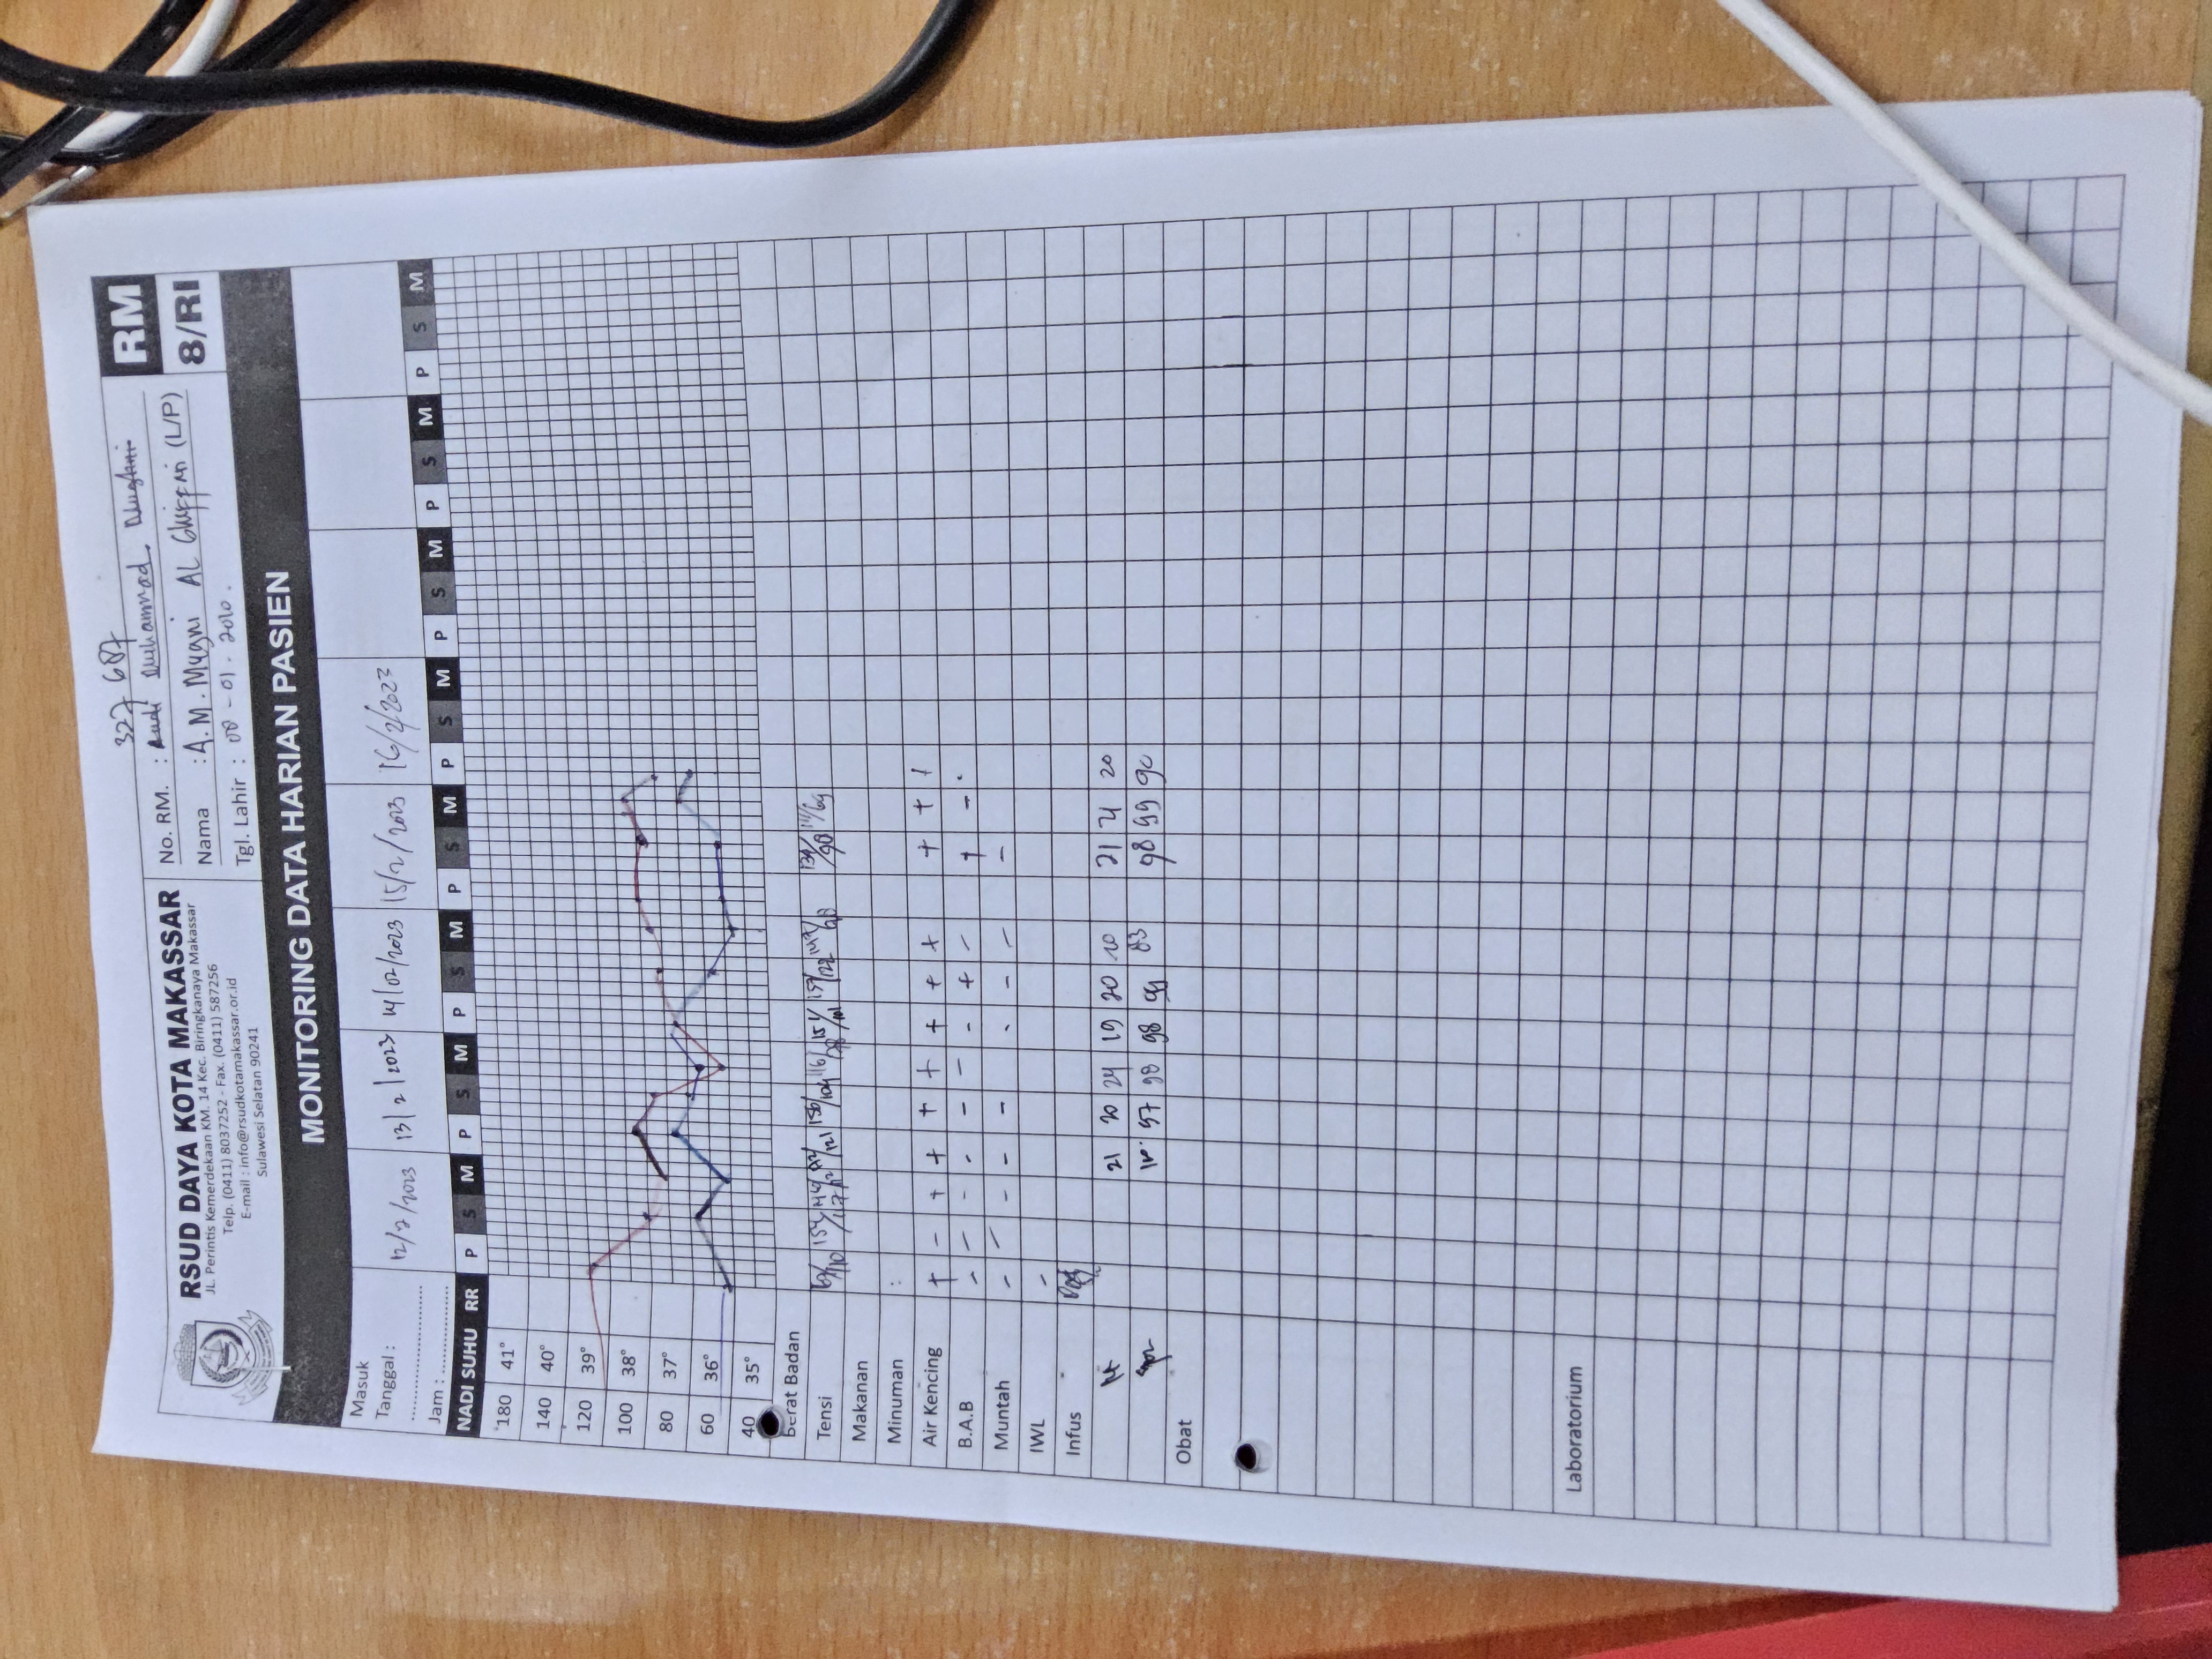 327 687
RSUD DAYA KOTA MAKASSAR
JL. Perintis Kemerdekaan KM. 14 Kec. Biringkanaya Makassar
Telp. (0411) 8037252 - Fax. (0411) 587256
E-mail : info@rsudkotamakassar.or.id
Sulawesi Selatan 90241
No. RM. : Muhammad
Nama : A. M. Mugni AL Ghiffari (L/P)
Tgl. Lahir : 08 - 01 - 2010.
RM
8/RI
MONITORING DATA HARIAN PASIEN
Masuk
Tanggal :
12/2/2023 13/2/2023 14/02/2023 15/2/2023 16/2/2023
Jam :
NADI SUHU RR P S M P S M P S M P S M P S M P S M P S M P S M
180 41°
140 40°
120 39°
100 38°
80 37°
60 36°
40 35°
Berat Badan
Tensi 156/104 151/101 157/122 111/69
Makanan
Minuman :
Air Kencing + - + + + + + + + + +
B.A.B - - - - - - - + - + -
Muntah - - - - - - - - -
IWL -
Infus
21 20 24 19 20 20 21 21 20
97 98 98 99 83 98 99 90
Obat
Laboratorium